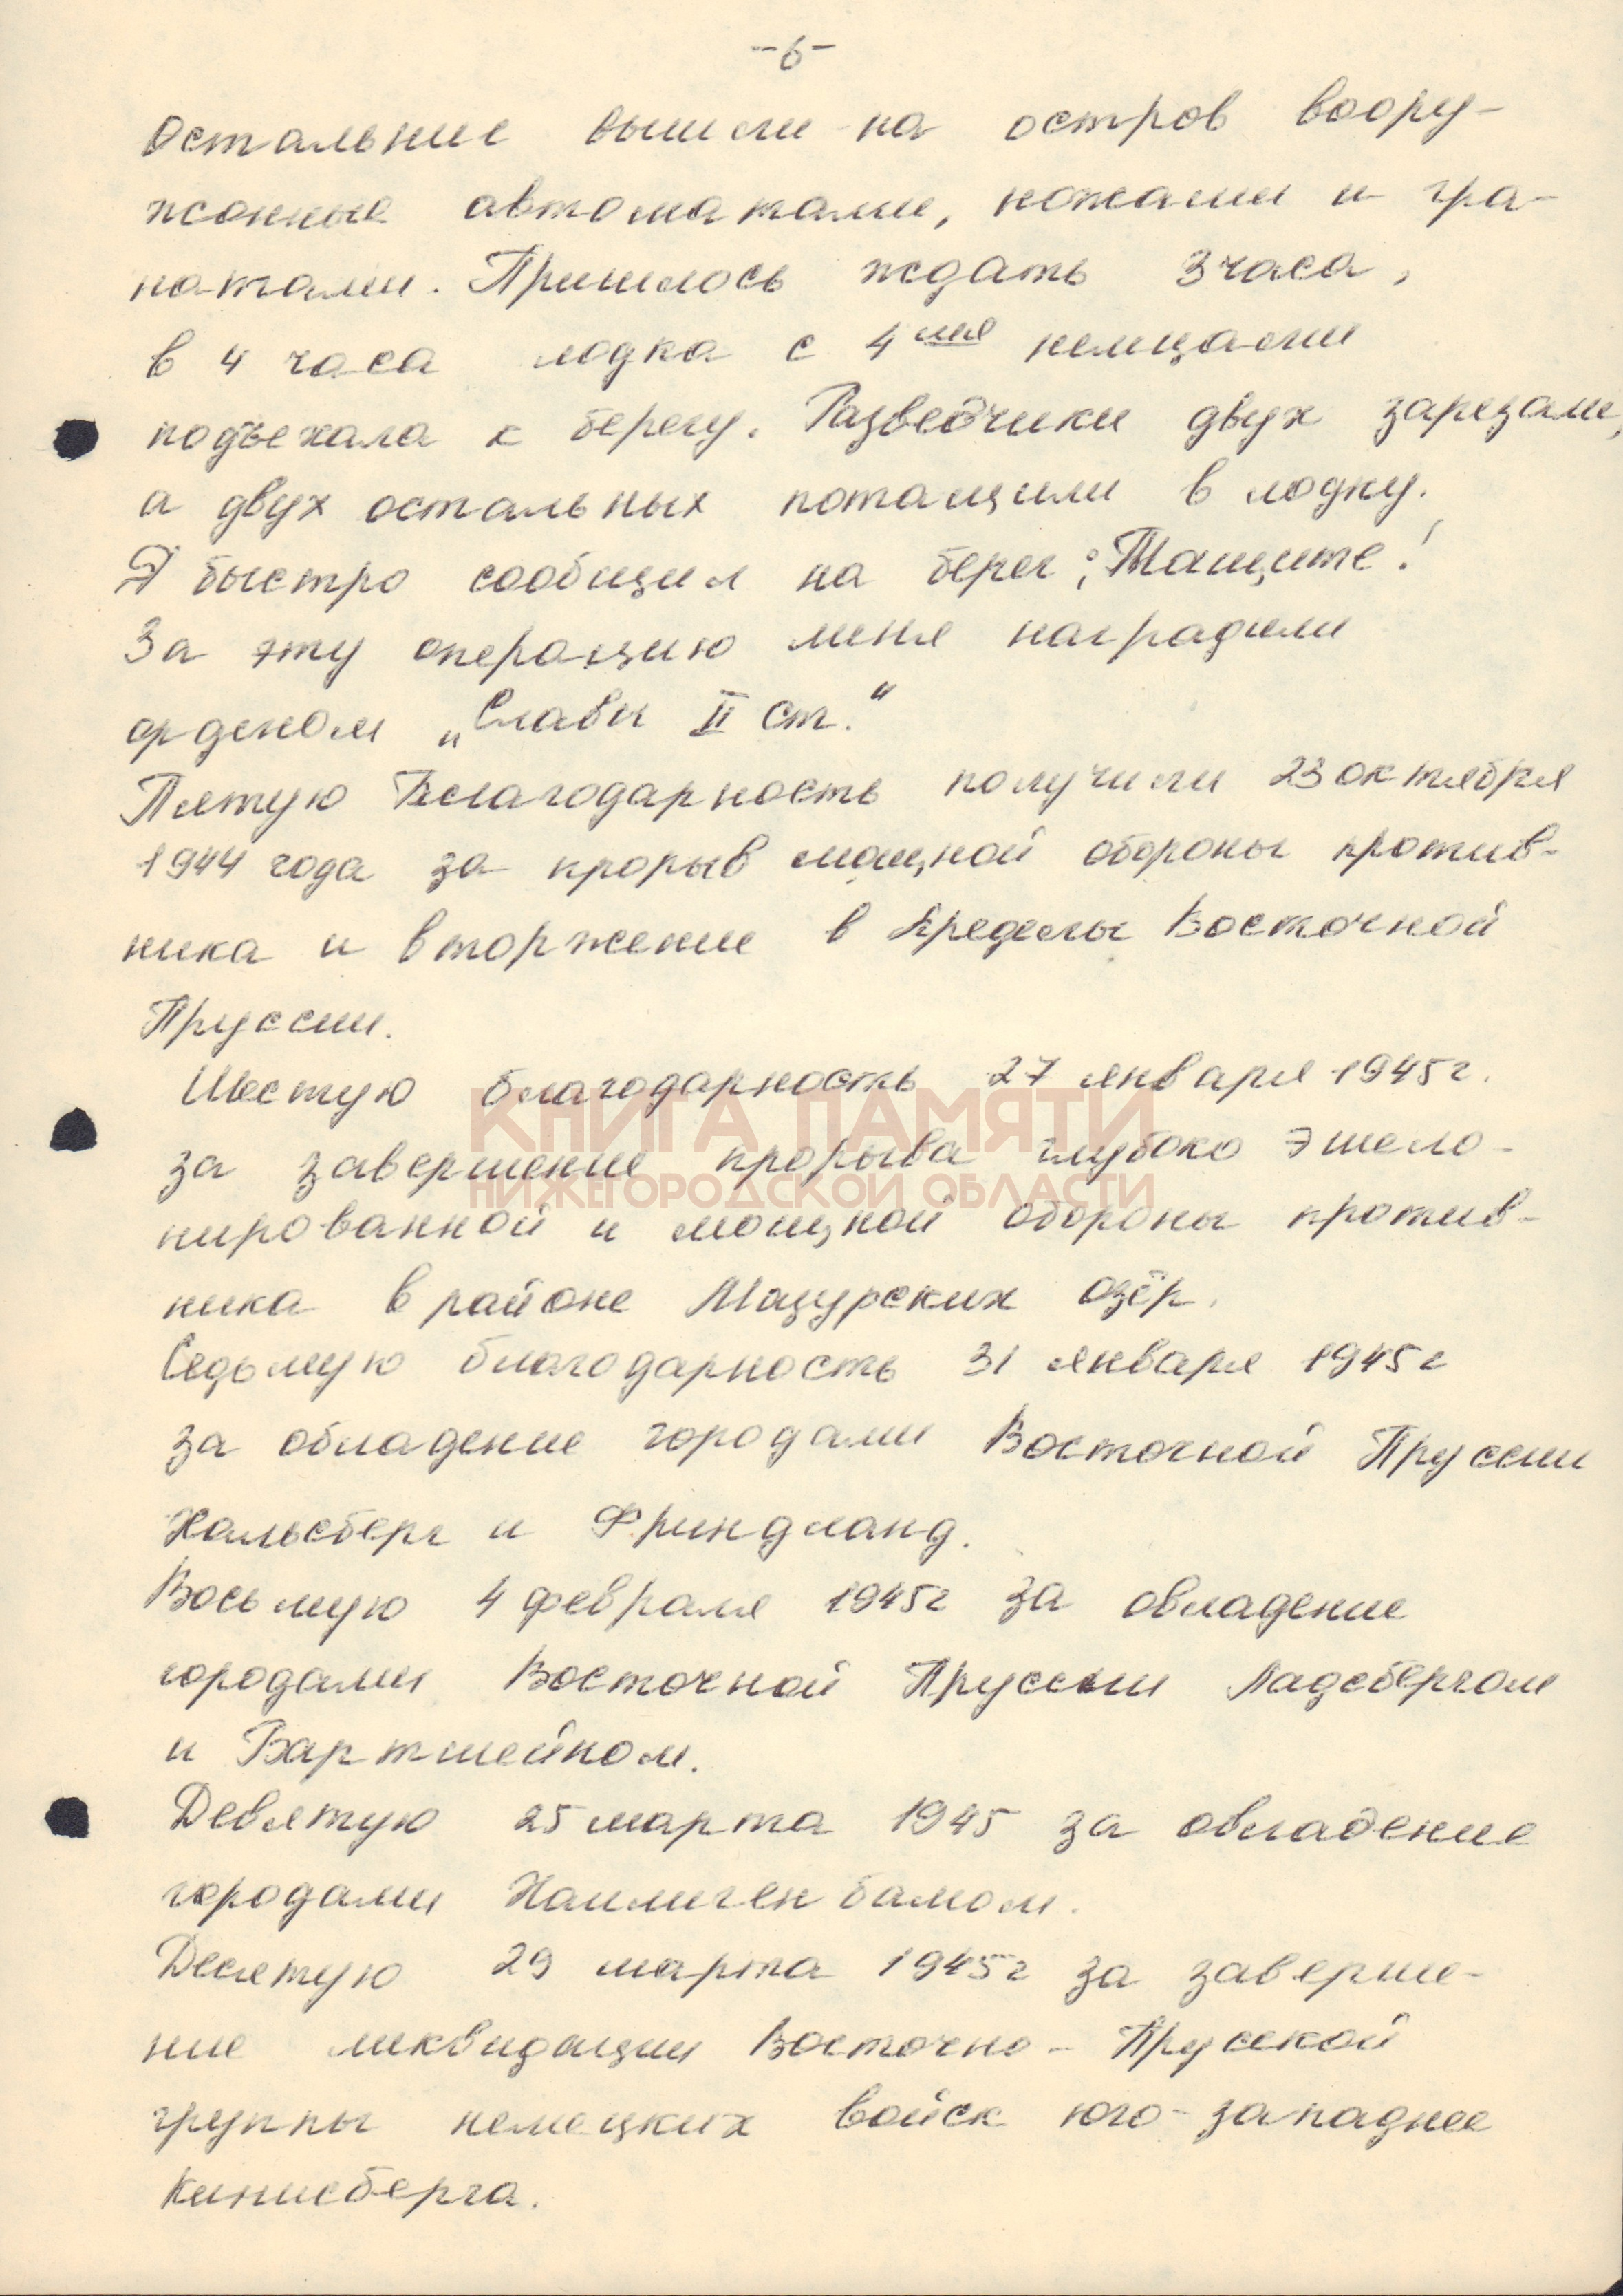 -6-
Остальные вышли на остров воору-
жонные автоматами, ножами и гра-
натами. Пришлось ждать 3 часа,
в 4 часа лодка с 4мя немцами
подъехала к берегу. Разведчики двух зарезали,
а двух остальных потащили в лодку.
Я быстро сообщил на берег: „Тащите!
За эту операцию меня наградили
орденом „Славы II ст."
Пятую Благодарность получили 23 октября
1944 года за прорыв мощной обороны против-
ника и вторжение в пределы Восточной
Пруссии.
Шестую благодарность 27 января 1945г.
КНИГА ПАМЯТИ
за завершение прорыва глубоко эшело-
НИЖЕГОРОДСКОЙ ОБЛАСТИ
нированной и мощной обороны против-
ника в районе Мазурских озёр.
Седьмую благодарность 31 января 1945г
за обладение городами Восточной Пруссии
Хальсберг и Фриндланд.
Восьмую 4 февраля 1945г за овладение
городами Восточной Пруссии Ладсбергом
и Вартшейном.
Девятую 25 марта 1945 за овладение
городами Хаилигенбамом.
Десятую 29 марта 1945г за заверше-
ние ликвидации Восточно-Прусской
группы немецких войск юго-западнее
Кинисберга.